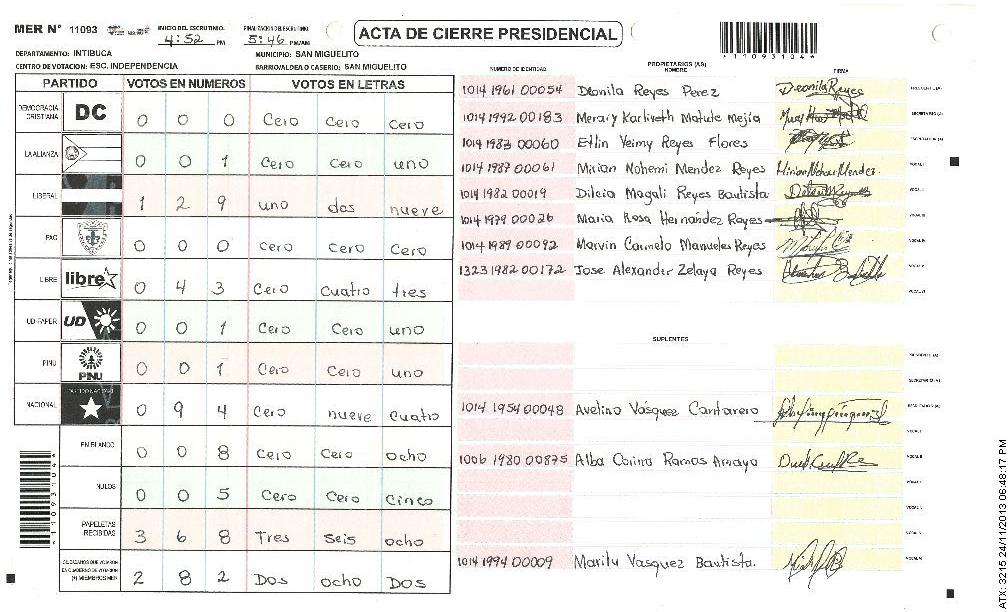 MER N° 11093 INICIO DEL ESCRUTINIO: 4:52 PM FINALIZACION DEL ESCRUTINIO: 5:46 PM/AM
ACTA DE CIERRE PRESIDENCIAL
*1109310 4*
DEPARTAMENTO: INTIBUCA MUNICIPIO: SAN MIGUELITO
CENTRO DE VOTACION: ESC. INDEPENDENCIA BARRIO/ALDEA O CASERIO: SAN MIGUELITO
PARTIDO VOTOS EN NUMEROS VOTOS EN LETRAS
DEMOCRACIA CRISTIANA DC 0 0 0 Cero Cero Cero
LA ALIANZA 0 0 1 Cero Cero uno
LIBERAL 1 2 9 uno dos nueve
PAC 0 0 0 Cero Cero Cero
LIBRE libre 0 4 3 Cero Cuatro tres
UD-FAPER UD 0 0 1 Cero Cero uno
PINU PINU 0 0 1 Cero Cero uno
NACIONAL 0 9 4 Cero nueve Cuatro
EN BLANCO 0 0 8 Cero Cero ocho
NULOS 0 0 5 Cero Cero Cinco
PAPELETAS RECIBIDAS 3 6 8 Tres seis ocho
CIUDADANOS QUE VOTARON EN CUADERNO DE VOTACION (+) MIEMBROS MER 2 8 2 Dos ocho Dos
PROPIETARIOS (AS)
NUMERO DE IDENTIDAD NOMBRE FIRMA
1014 1961 00054 Deonila Reyes Perez Deonila Reyes PRESIDENTE (A)
1014 1992 00183 Merary Karliveth Matute Mejía SECRETARIO (A)
1014 1983 00060 Etlin Yeimy Reyes Flores ESCRUTADOR (A)
1014 1987 00061 Mirian Nohemi Mendez Reyes Mirian Nohemi Mendez VOCAL I
1014 1982 00019 Dilcia Magali Reyes Bautista VOCAL II
1014 1979 00026 Maria Rosa Hernández Reyes VOCAL III
1014 1989 00092 Marvin Carmelo Manueles Reyes VOCAL IV
1323 1982 00172 Jose Alexander Zelaya Reyes VOCAL V
VOCAL VI
SUPLENTES
PRESIDENTE (A)
SECRETARIO (A)
1014 1954 00048 Avelino Vásquez Cantarero ESCRUTADOR (A)
VOCAL I
1006 1980 00875 Alba Corina Ramos Amaya VOCAL II
1014 1994 00009 Marilu Vasquez Bautista.
*1109310 4*
ATX: 3215 24/11/2013 06:48:17 PM